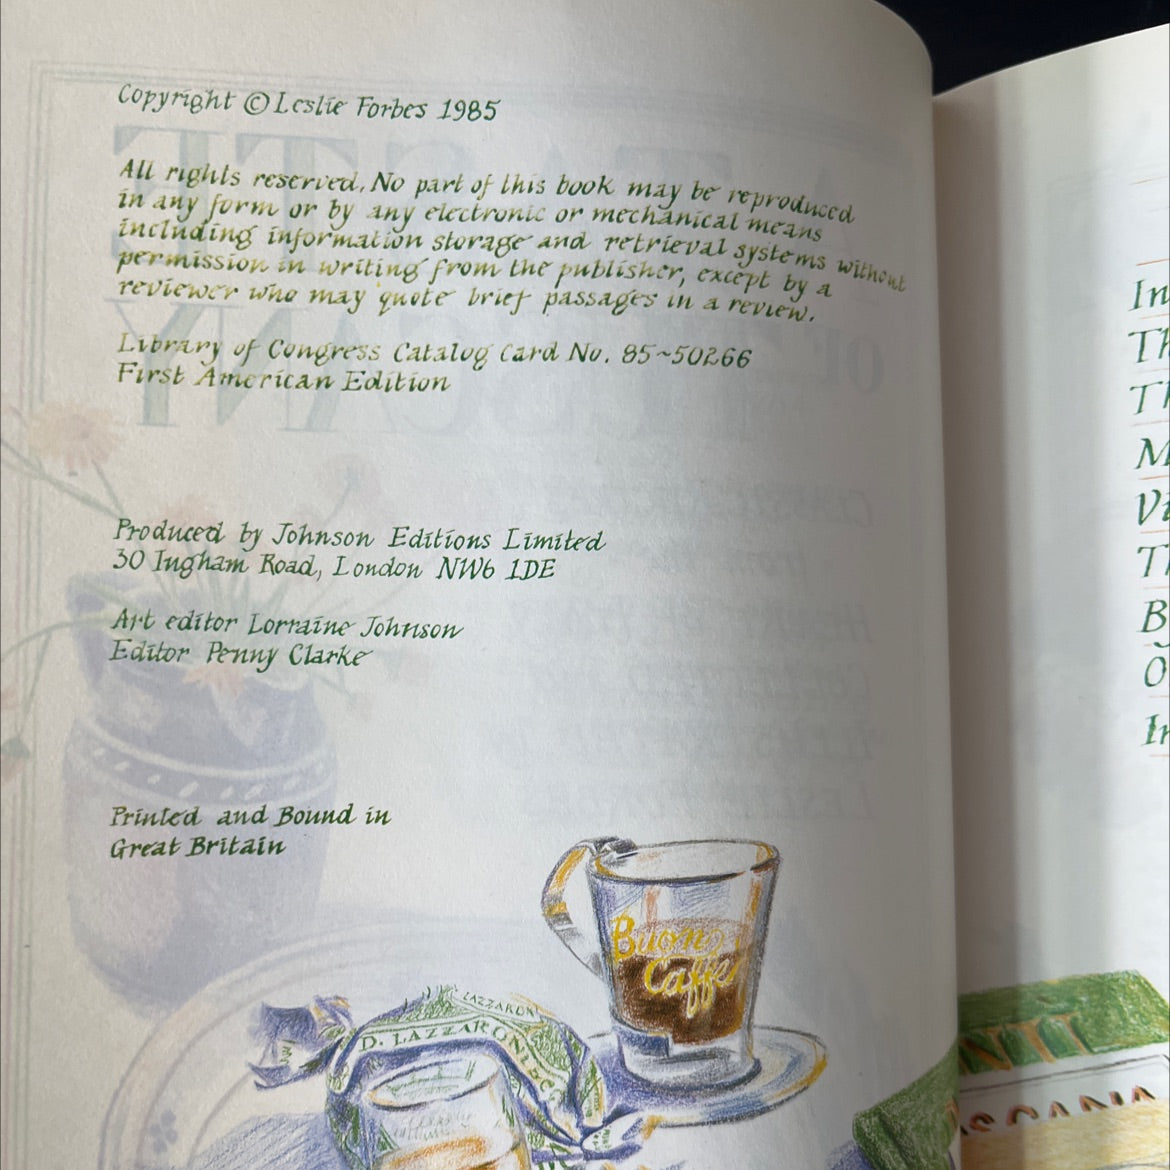 Copyright © Leslie Forbes 1985
All rights reserved. No part of this book may be reproduced
in any form or by any electronic or mechanical means
including information storage and retrieval systems without
permission in writing from the publisher, except by a
reviewer who may quote brief passages in a review.
Library of Congress Catalog Card No. 85~50266
First American Edition
Produced by Johnson Editions Limited
30 Ingham Road, London NW6 1DE
Art editor Lorraine Johnson
Editor Penny Clarke
Printed and Bound in
Great Britain
Buon
Caffè
LAZZARON
D. LAZZARONI & C
In
Th
Th
M
Vi
Th
B
O
In